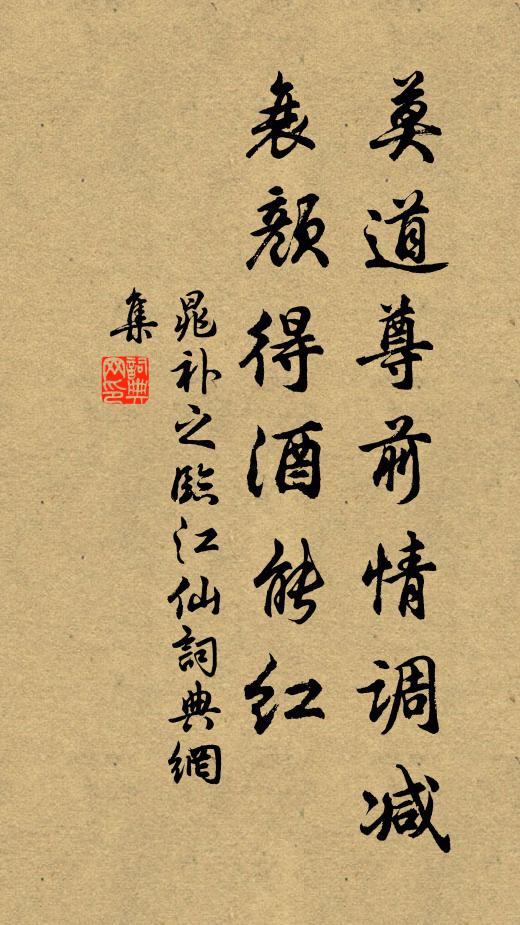 莫道尊前情调减
衰颜得酒能红
晁补之临江仙词典網
集
詞典网印